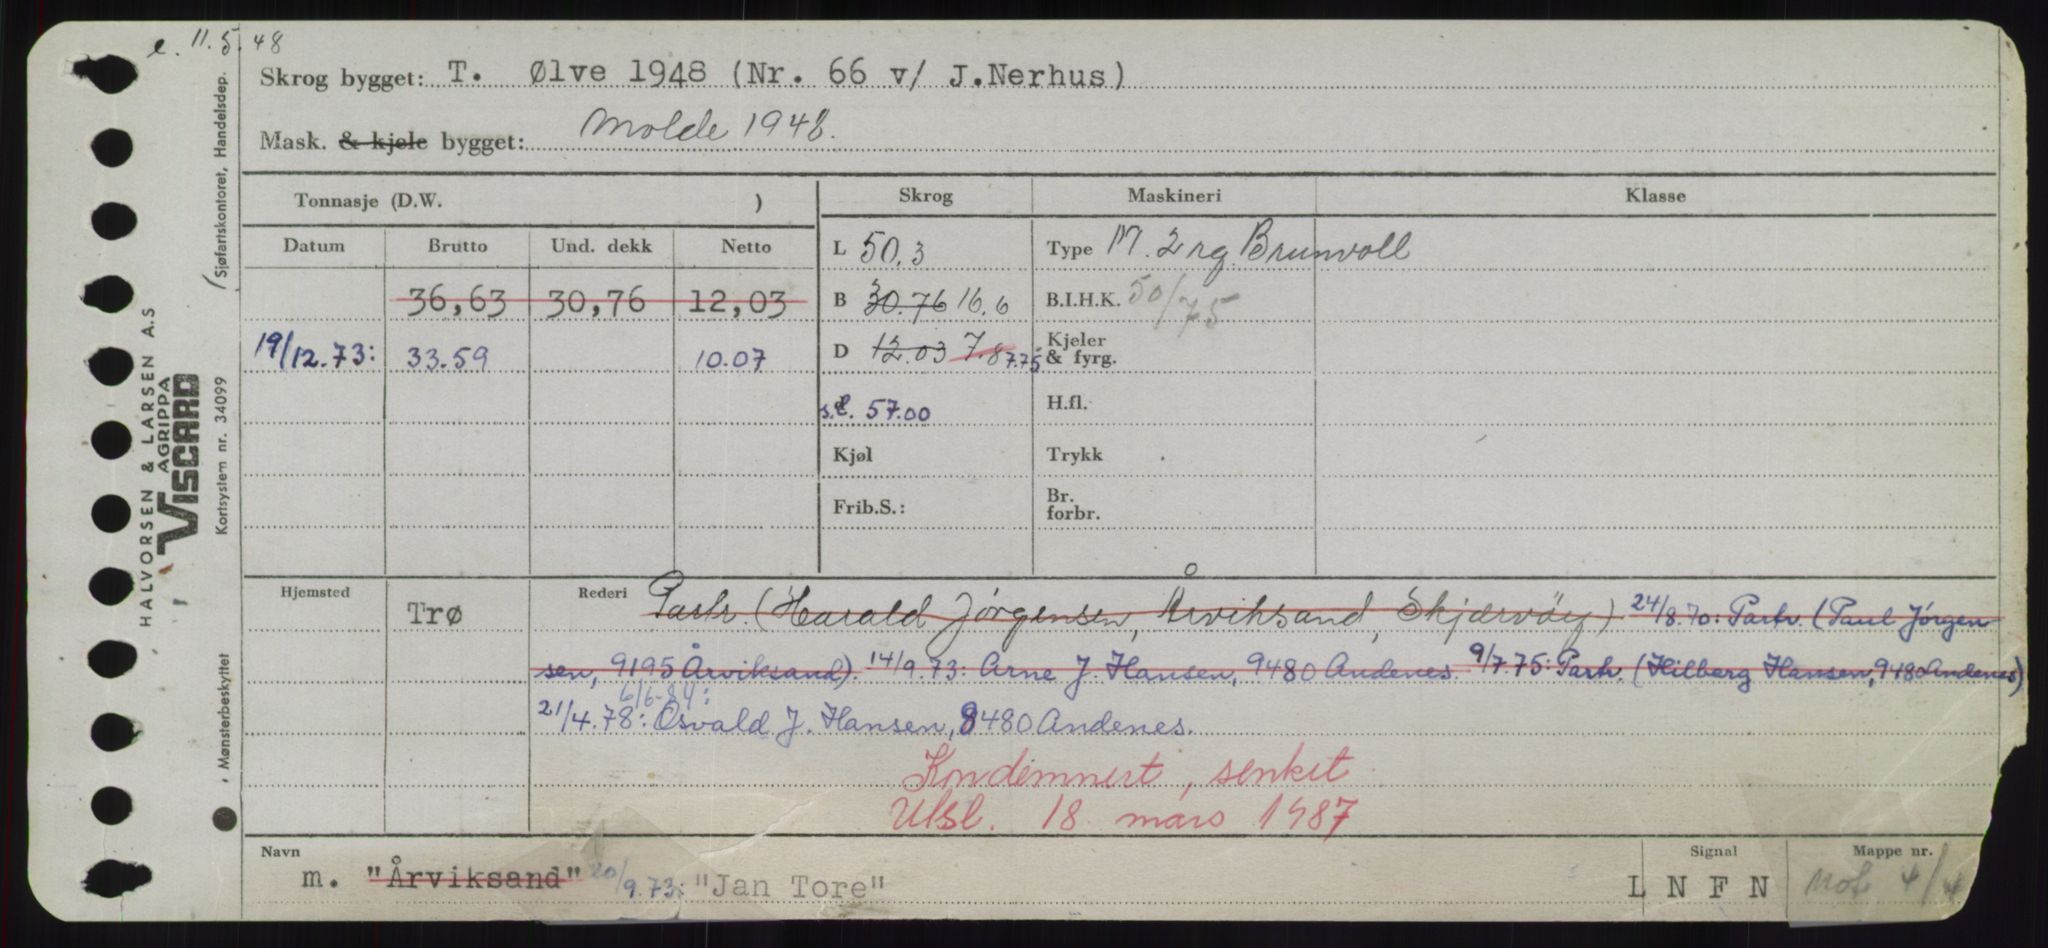 e. 11.5.48
Skrog bygget: T. Ølve 1948 (Nr. 66 v/ J.Nerhus)
Mask. & kjele bygget: Molde 1948.
Tonnasje (D.W. )
Skrog Maskineri Klasse
Datum Brutto Und. dekk Netto
L 50.3 Type M. 2 rg. Brunvoll
36,63 30,76 12,03
B 30.76 16.6 B.I.H.K. 50/75
19/12.73: 33.59 10.07
D 12.03 7.8 7.75 Kjeler & fyrg.
s.l. 57.00 H.fl.
Kjøl Trykk
Frib.S.: Br. forbr.
Hjemsted Trø Rederi Partr. (Harald Jørgensen, Årviksand, Skjærvøy) 24/8.70: Partr. (Paul Jørgen
sen, 9195 Årviksand). 14/9.73: Arne J. Hansen, 9480 Andenes. 9/7.75: Partr. (Hilberg Hansen, 9480 Andenes)
6/6-84:
21/4.78: Osvald J. Hansen, 8480 Andenes.
Kondemnert, senket
Utsl. 18 mars 1987
Navn Signal Mappe nr.
m. "Årviksand" 20/9.73: "Jan Tore" L N F N Mot 4/4
HALVORSEN & LARSEN A.S
AGRIPPA
VISCARD
(Sjøfartskontoret, Handelsdep.
Kortsystem nr. 34099
Mønsterbeskyttet